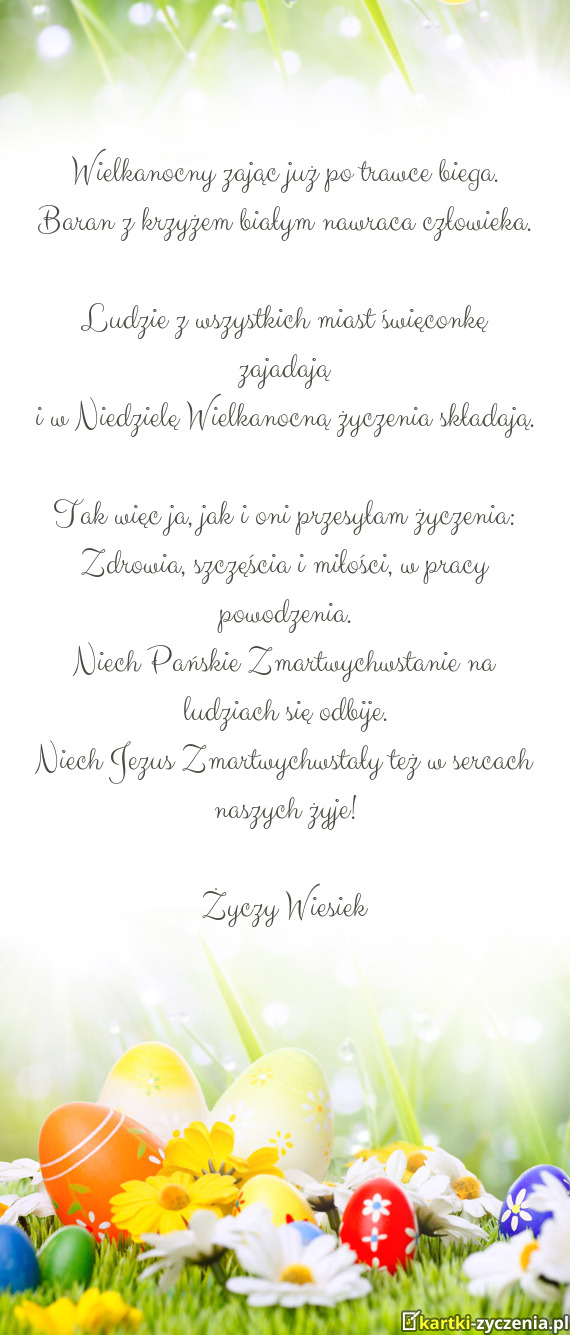 Wielkanocny zając już po trawce biega.
Baran z krzyżem białym nawraca człowieka.
Ludzie z wszystkich miast święconkę
zajadają
i w Niedzielę Wielkanocną życzenia składają.
Tak więc ja, jak i oni przesyłam życzenia:
Zdrowia, szczęścia i miłości, w pracy
powodzenia.
Niech Pańskie Zmartwychwstanie na
ludziach się odbije.
Niech Jezus Zmartwychwstały też w sercach
naszych żyje!
Życzy Wiesiek
kartki-zyczenia.pl